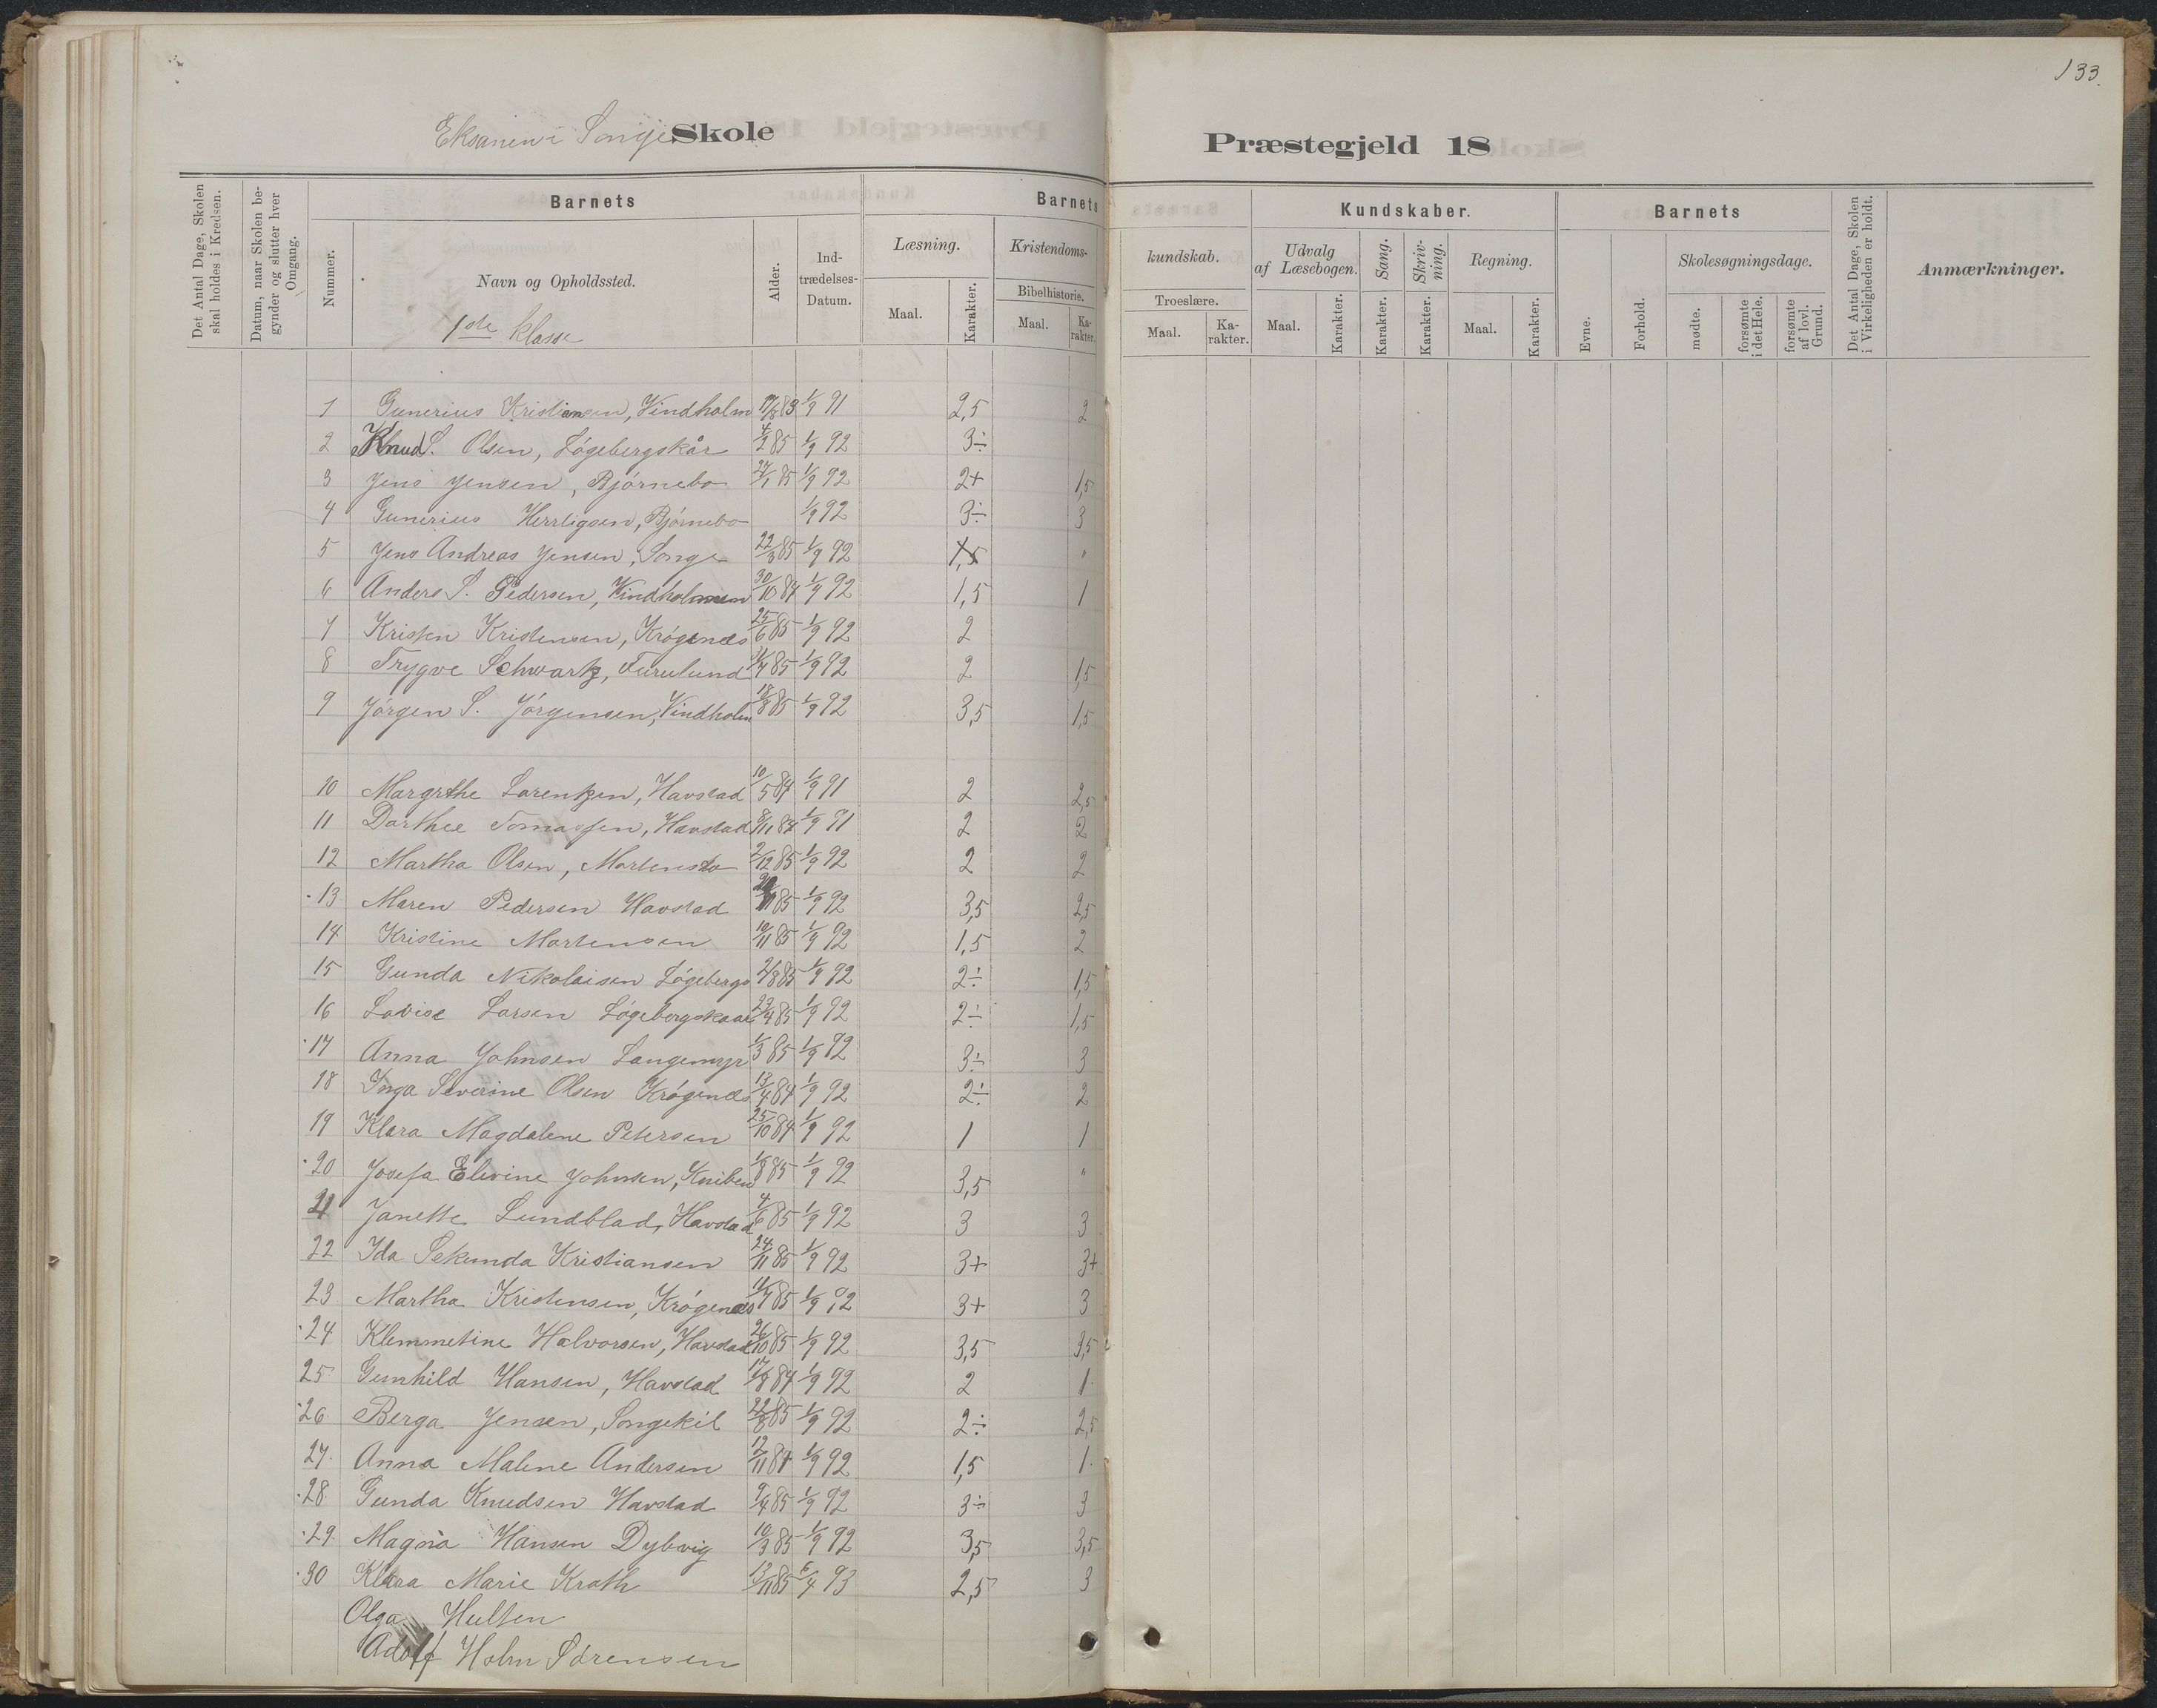 133.
Eksamen i Songe Skole
Præstegjeld 18
Det Antal Dage, Skolen skal holdes i Kredsen.
Datum, naar Skolen begynder og slutter hver Omgang.
Barnets
Nummer.
Navn og Opholdssted.
1ste klasse
Alder.
Indtrædelses-Datum.
Barnets
Læsning.
Maal.
Karakter.
Kristendoms-
Bibelhistorie.
Maal.
Karakter.
kundskab.
Troeslære.
Maal.
Karakter.
Kundskaber.
Udvalg af Læsebogen.
Maal.
Karakter.
Sang.
Karakter.
Skrivning.
Karakter.
Regning.
Maal.
Karakter.
Barnets
Evne.
Forhold.
Skolesøgningsdage.
mødte.
forsømte i det Hele.
forsømte af lovl. Grund.
Det Antal Dage, Skolen i Virkeligheden er holdt.
Anmærkninger.
1 Gunerius Kristiansen, Vindholm 17/8 83 1/9 91 2,5 2
2 Knud S. Olsen, Løgebergskår 4/2 85 1/9 92 3÷
3 Jens Jensen, Bjørnebo 24/1 85 1/9 92 2+ 1,5
4 Gunerius Herrligsen, Bjørnebo 1/9 92 3÷ 3
5 Jens Andreas Jensen, Songe 22/3 85 1/9 92 1,5 "
6 Anders S. Pedersen, Vindholmen 30/10 84 1/9 92 1,5 1
7 Kristen Kristensen, Krøgenæs 25/6 85 1/9 92 2
8 Trygve Schwartz, Furulund 85 1/9 92 2 1,5
9 Jørgen S. Jørgensen, Vindholm 18/8 85 1/9 92 3,5 1,5
10 Margrthe Lorentzen, Havstad 10/5 84 1/9 91 2 2,5
11 Dorthee Tomassen, Havstad 8/11 84 1/9 91 2 2
12 Martha Olsen, Mortensbo 2/12 85 1/9 92 2 2
13 Maren Pedersen Havstad 85 1/9 92 3,5 2,5
14 Kristine Mortensen 10/11 85 1/9 92 1,5 2
15 Gunda Nikolaisen Løgebergs 2/8 85 1/9 92 2÷ 1,5
16 Lovise Larsen Løgebergskaar 23/9 85 1/9 92 2÷ 1,5
17 Anna Johnsen Langemyr 1/3 85 1/9 92 3÷ 3
18 Inga Severine Olsen Krøgenæs 13/4 84 1/9 92 2÷ 2
19 Klara Magdalene Petersen 25/10 84 1/9 92 1 1
20 Josefa Elevine Johnsen, Kniben 1/8 85 1/9 92 3,5 "
21 Janette Lundblad, Havstad 4/6 85 1/9 92 3 3
22 Ida Sekunda Kristiansen 24/11 85 1/9 92 3+ 3+
23 Martha Kristensen, Krøgenæs 11/7 85 1/9 92 3+ 3
24 Klemmetine Halvorsen, Havstad 26/10 85 1/9 92 3,5 3,5
25 Gunhild Hansen, Havstad 17/8 84 1/9 92 2 1
26 Berga Jensen, Songekil 22/8 85 1/9 92 2÷ 2,5
27 Anna Maline Andersen 12/11 84 1/9 92 1,5 1
28 Gunda Knudsen Havstad 9/4 85 1/9 92 3÷ 3
29 Magna Hansen Dybvig 10/3 85 1/9 92 3,5 3,5
30 Klara Marie Krath 13/11 85 5/4 93 2,5 3
Olga Hulten
Adolf Holm Sørensen